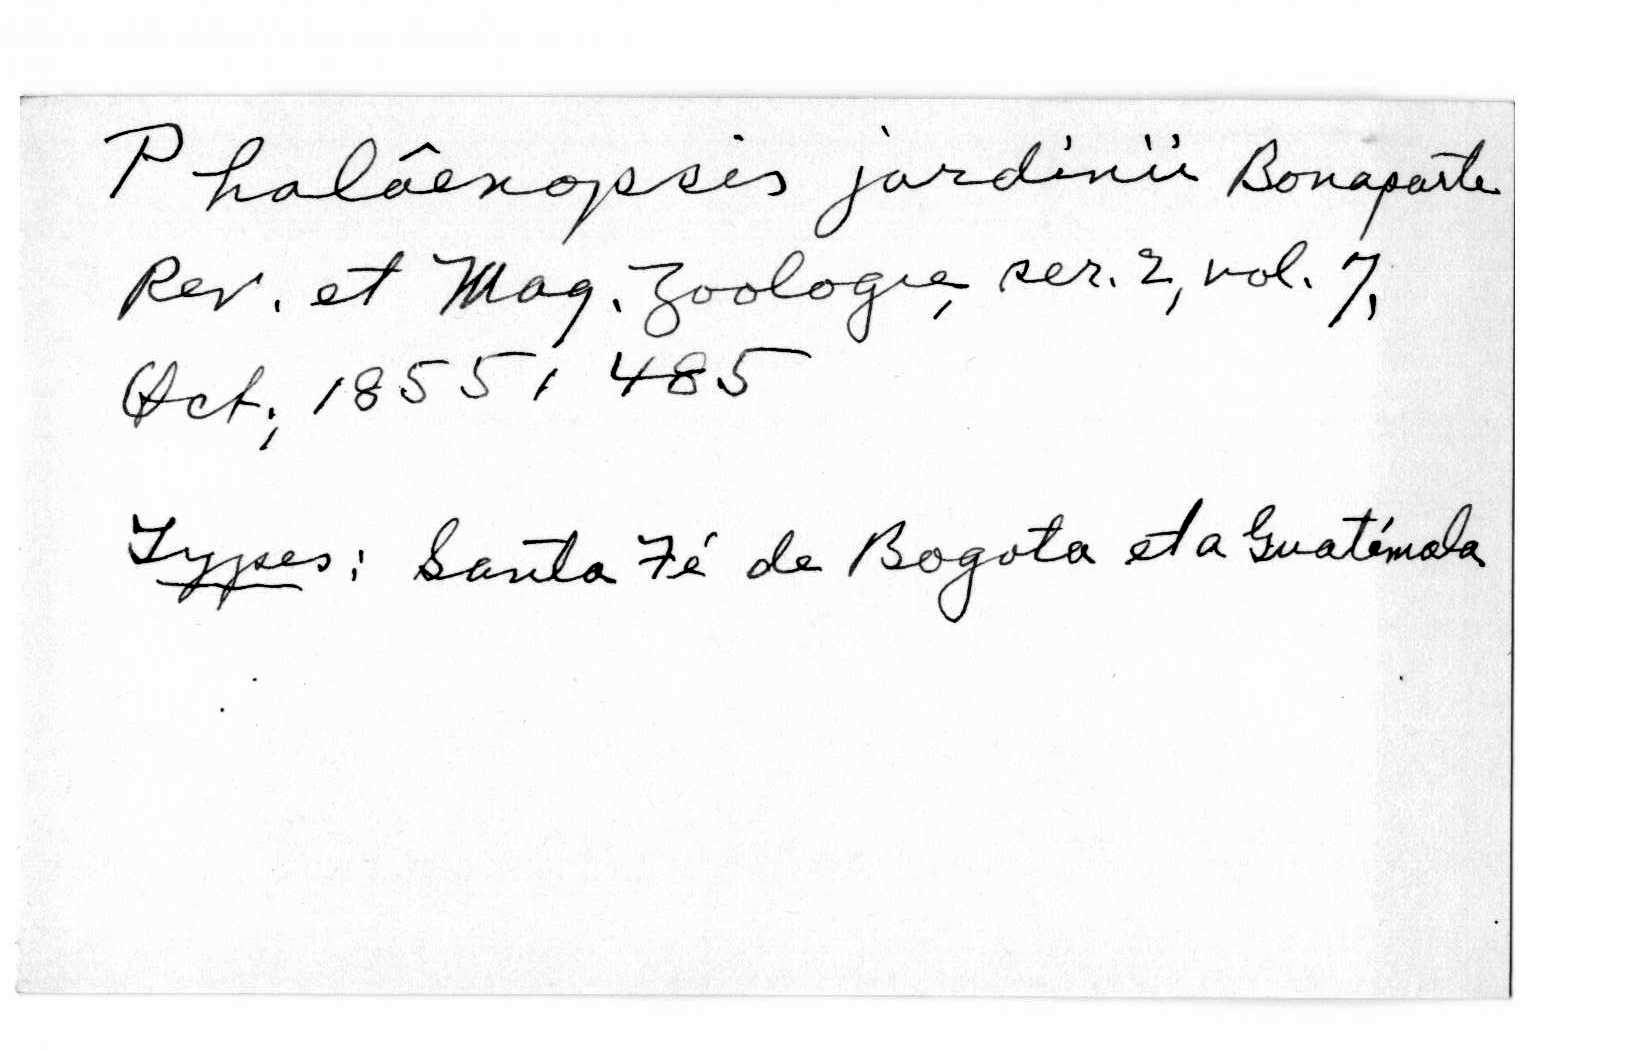 Phalâenopsis jardinii Bonaparte
Rev. et Mag. Zoologie, ser. 2, vol. 7,
Oct., 1855, 485
Types: Santa Fé de Bogota et a Guatémala